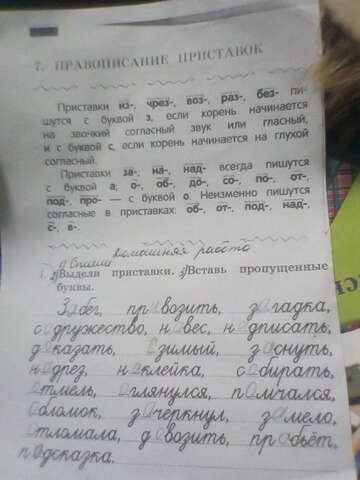 7. ПРАВОПИСАНИЕ ПРИСТАВОК
Приставки из-, чрез-, воз-, раз-, без- пи-
шутся с буквой з, если корень начинается
на звонкий согласный звук или гласный,
и с буквой с, если корень начинается на глухой
согласный.
Приставки за-, на-, над- всегда пишутся
с буквой а; о-, об-, до-, со-, по-, от-,
под-, про- — с буквой о. Неизменно пишутся
согласные в приставках: об-, от-, под-, над-,
с-, в-.
домашняя работа
1) Спиши
1. 2) Выдели приставки. 3) Вставь пропущенные
буквы.
Забег, привозить, загадка,
содружество, навес, надписать,
доказать, озимый, заснуть,
надрез, наклейка, собирать,
отмель, оглянулся, помчался,
обломок, зачеркнул, замело,
отломала, довозить, пробьёт,
подсказка.